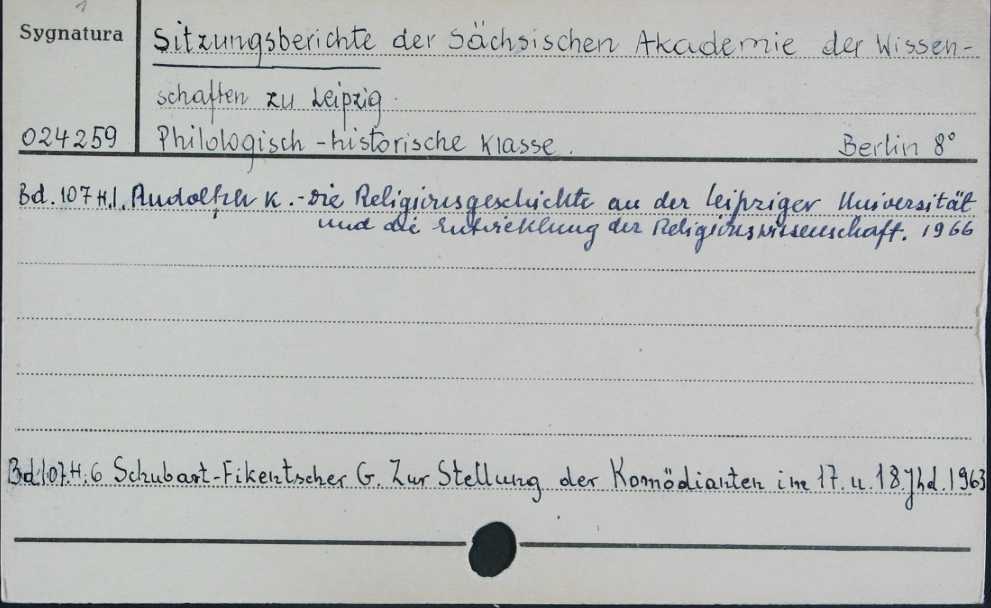 1
Sygnatura
Sitzungsberichte der Sächsischen Akademie der Wissen-
schaften zu Leipzig.
024259
Philologisch-historische Klasse.
Berlin 8°
Bd. 107 H.1. Rudolph K. - Die Religionsgeschichte an der Leipziger Universität
und die Entwicklung der Religionswissenschaft. 1966
Bd.107.H.6 Schubart-Fikentscher G. Zur Stellung der Komödianten im 17. u. 18. Jhd. 1963